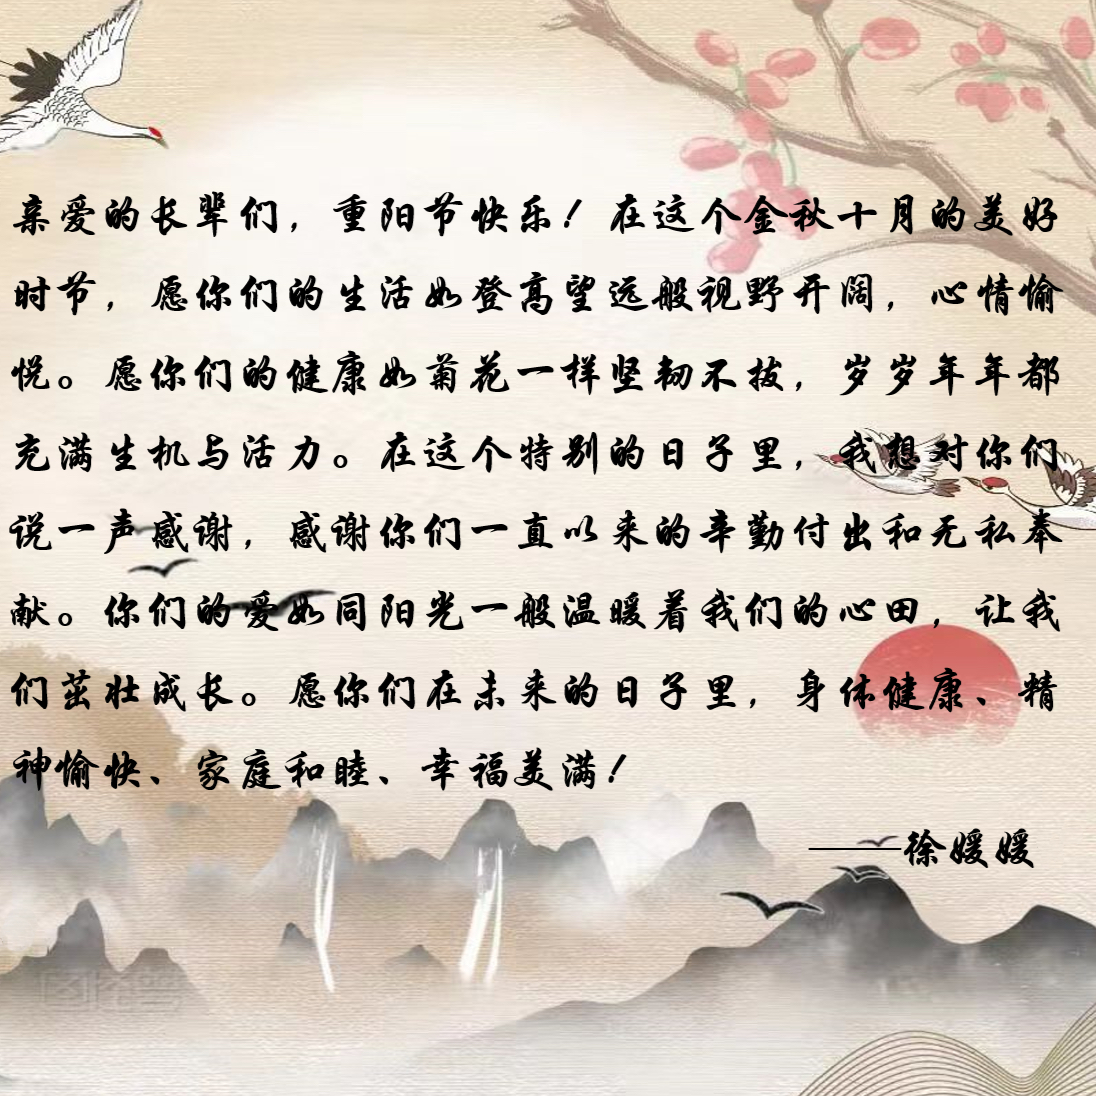 亲爱的长辈们，重阳节快乐！在这个金秋十月的美好
时节，愿你们的生活如登高望远般视野开阔，心情愉
悦。愿你们的健康如菊花一样坚韧不拔，岁岁年年都
充满生机与活力。在这个特别的日子里，我想对你们
说一声感谢，感谢你们一直以来的辛勤付出和无私奉
献。你们的爱如同阳光一般温暖着我们的心田，让我
们茁壮成长。愿你们在未来的日子里，身体健康、精
神愉快、家庭和睦、幸福美满！
——徐媛媛